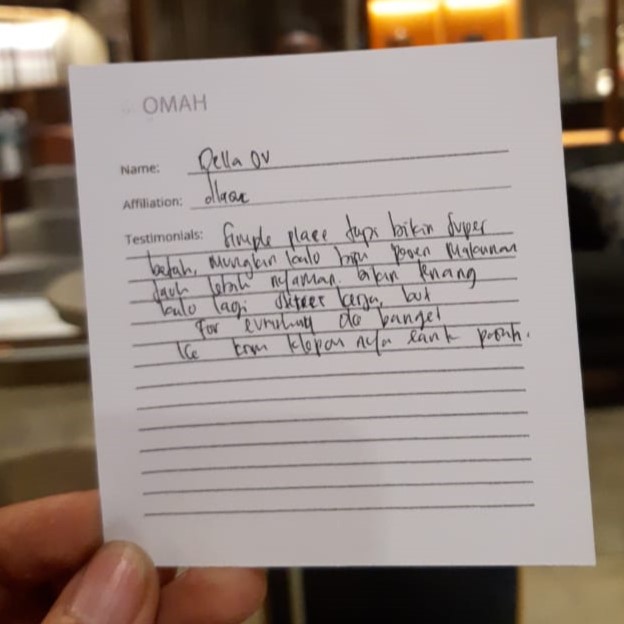 OMAH
Name: Della OV
Affiliation:
Testimonials: Simple place tapi bikin super
betah, mungkin kalo bisa pesen makanan
jauh lebih nyaman. bikin tenang
kalo lagi stress kerja, but
for everything ok banget
Ice krim klepon nya enak parah.